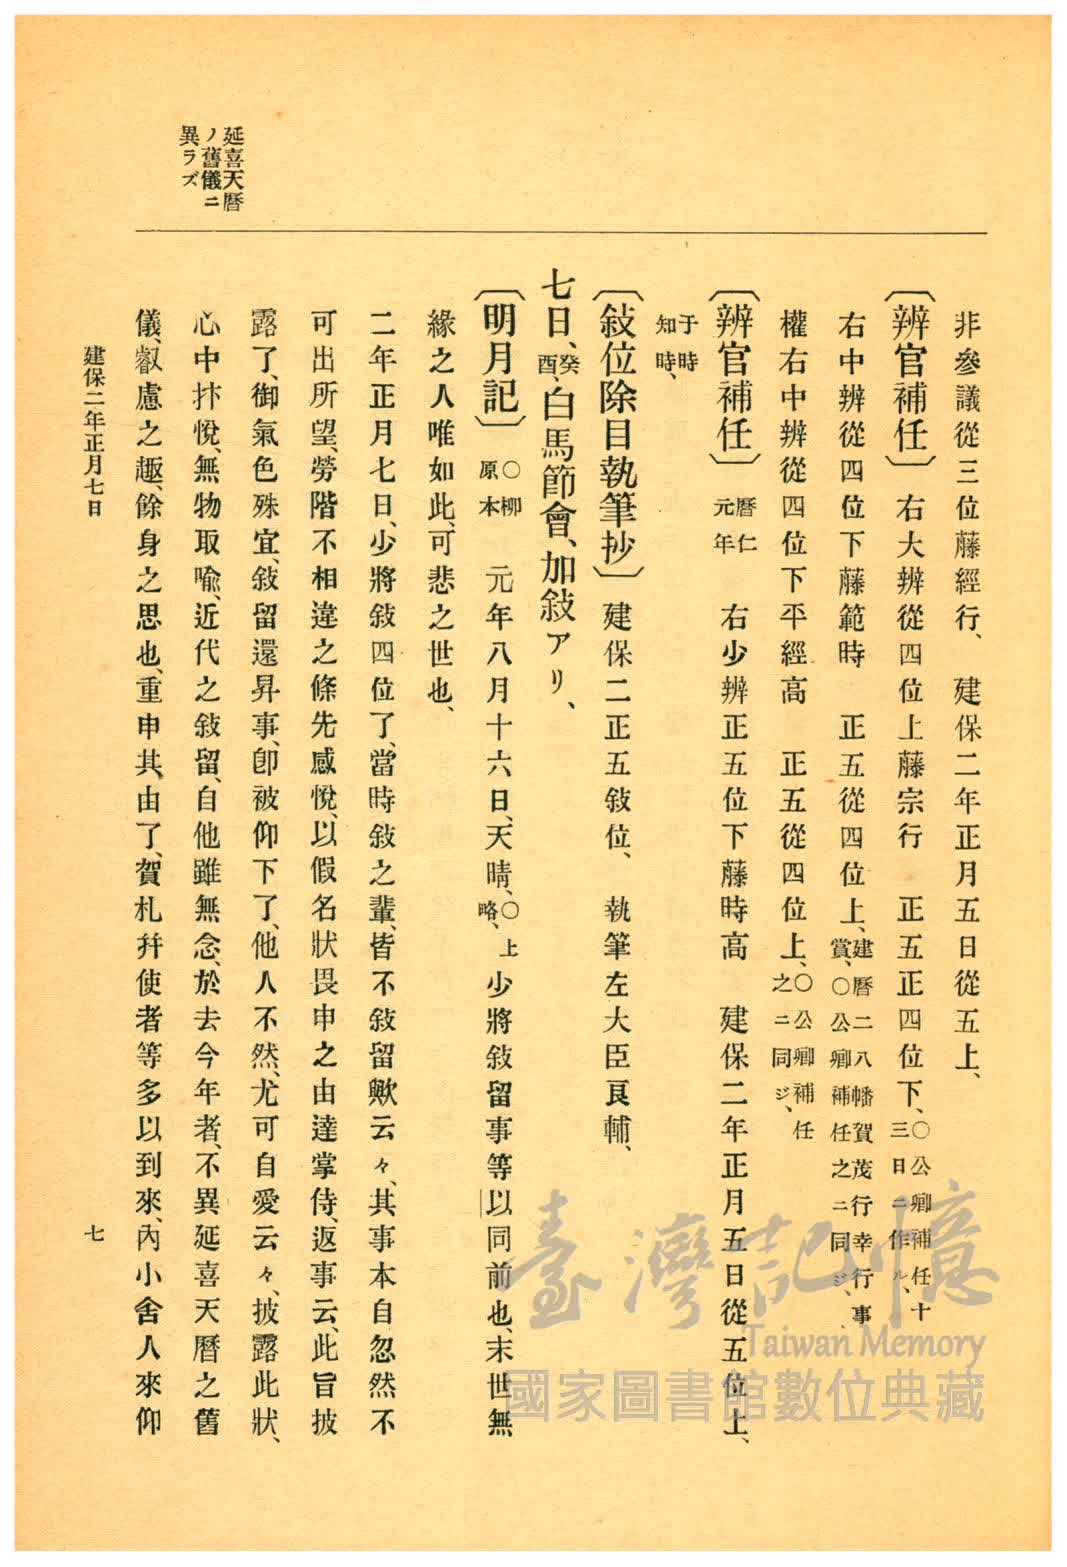 延喜天曆
ノ舊儀ニ
異ラズ
非參議從三位藤經行、　建保二年正月五日從五上、
〔辨官補任〕　右大辨從四位上藤宗行　正五正四位下、○公卿補任十三日ニ作ル、
右中辨從四位下藤範時　正五從四位上、建曆二八幡賀茂行幸行事賞、○公卿補任之ニ同ジ、
權右中辨從四位下平經高　正五從四位上、○公卿補任之ニ同ジ、
〔辨官補任〕曆仁元年　右少辨正五位下藤時高　建保二年正月五日從五位上、
于時知時、
〔敍位除目執筆抄〕建保二正五敍位、　執筆左大臣良輔、
七日、癸酉、白馬節會、加敍アリ、
〔明月記〕○柳原本　元年八月十六日、天晴、○上略、少將敍留事等以同前也、末世無
緣之人唯如此、可悲之世也、
二年正月七日、少將敍四位了、當時敍之輩、皆不敍留歟云々、其事本自忽然不
可出所望、勞階不相違之條先感悅、以假名狀畏申之由達掌侍、返事云、此旨披
露了、御氣色殊宜、敍留還昇事、卽被仰下了、他人不然、尤可自愛云々、披露此狀、
心中抃悅、無物取喩、近代之敍留、自他雖無念、於去今年者、不異延喜天曆之舊
儀、叡慮之趣、餘身之思也、重申其由了、賀札幷使者等多以到來、內小舍人來仰
建保二年正月七日
七
臺灣記憶
Taiwan Memory
國家圖書館數位典藏